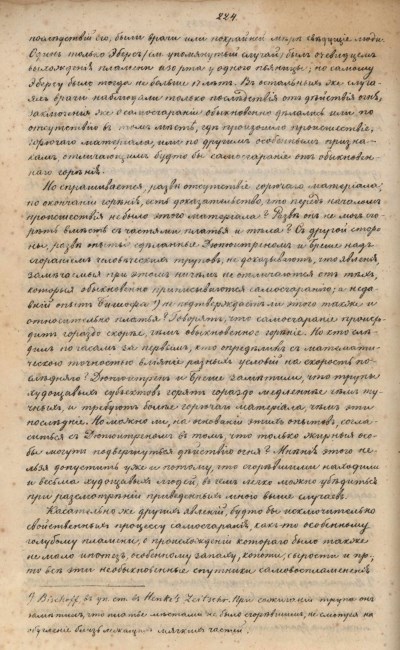 224.
послѣдствій его, были врачи или покрайней мѣрѣ свѣдущіе люди.
Одинъ только Эберсъ (см. упомянутый случай) былъ очевидцемъ
выхожденія пламени изо рта у одного пьяницы; но самому
Эберсу было тогда не больше 17 лѣтъ. Въ остальныхъ же случа-
яхъ врачи наблюдали только послѣдствія отъ дѣйствія огня,
заключенія же о самосгараніи обыкновенно дѣлались или по
отсутствію въ томъ мѣстѣ, гдѣ произошло происшествіе,
горючаго матеріала, или по другимъ особеннымъ призна-
камъ, отличающимъ будто бы самосгараніе отъ обыкновен-
наго горѣнія.
Но спрашивается, развѣ отсутствіе горючаго матеріала,
по окончаніи горѣнія, есть доказательство, что передъ началомъ
происшествія не было этого матеріала? Развѣ онъ не могъ сго-
рѣть вмѣстѣ съ частями платья и тѣла? Съ другой сторо-
ны, развѣ опыты сдѣланные Дюпюитреномъ и Бреше надъ
сгораніемъ человѣческихъ труповъ, не доказываютъ, что явленія,
замѣчаемыя при этомъ ничѣмъ не отличаются отъ тѣхъ,
которыя обыкновенно приписываются самосгаранію; а недав-
ній опытъ Бишофа *) не подтверждаетъ ли этого также и
относительно платья? Говорятъ, что самосгараніе происхо-
дитъ гораздо скорѣе, чѣмъ обыкновенное горѣніе. Но кто слѣ-
дилъ по часамъ за первымъ, кто опредѣлилъ съ математи-
ческою точностью вліяніе разныхъ условій на скорость по-
слѣдняго? Дюпюитренъ и Бреше замѣтили, что трупы
худощавыхъ субъектовъ горятъ гораздо медленнѣе чѣмъ туч-
ныхъ, и требуютъ болѣе горючаго матеріала, чѣмъ эти
послѣдніе. Но можно ли, на основаніи этихъ опытовъ, согла-
ситься съ Дюпюитреномъ въ томъ, что только жирныя осо-
бы могутъ подвергнуться дѣйствію огня? Мнѣнія этого не-
льзя допустить уже и потому, что сгорѣвшими находили
и весьма худощавыхъ людей, въ чемъ легко можно убѣдиться
при разсмотрѣніи приведенныхъ мною выше случаевъ.
Касательно же другихъ явленій, будто бы исключительно
свойственныхъ процессу самосгаранія, какъ-то особенному
голубому пламени, о происхожденіи котораго было также
не мало ипотезъ, особенному запаху, копоти, сырости и пр.,
то всѣ эти необыкновенные спутники самовоспламененія
*) Bischoff, въ уп. ст. въ Henke's Zeitschr. При сожиганіи трупа онъ
замѣтилъ, что платье мѣстами не было сгорѣвшимъ, не смотря на
обугленіе близъ лежащихъ мягкихъ частей.